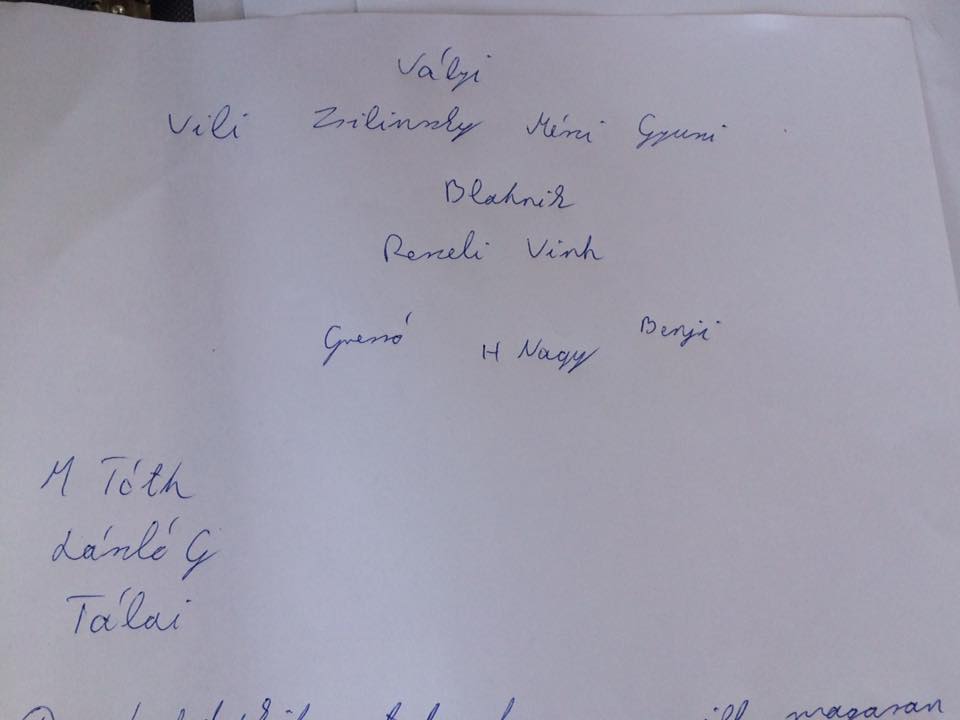 Vályi
Vili Zsilinszky Mészi Gyuszi
Blahnik
Reszeli Vinh
Gressó H Nagy Benji
M Tóth
László G
Tálai
magasan